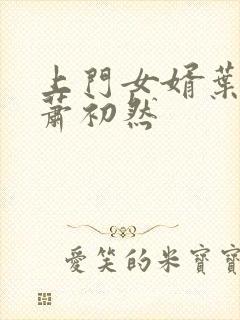 上門女婿葉
蕭初然
愛笑的米寶寶